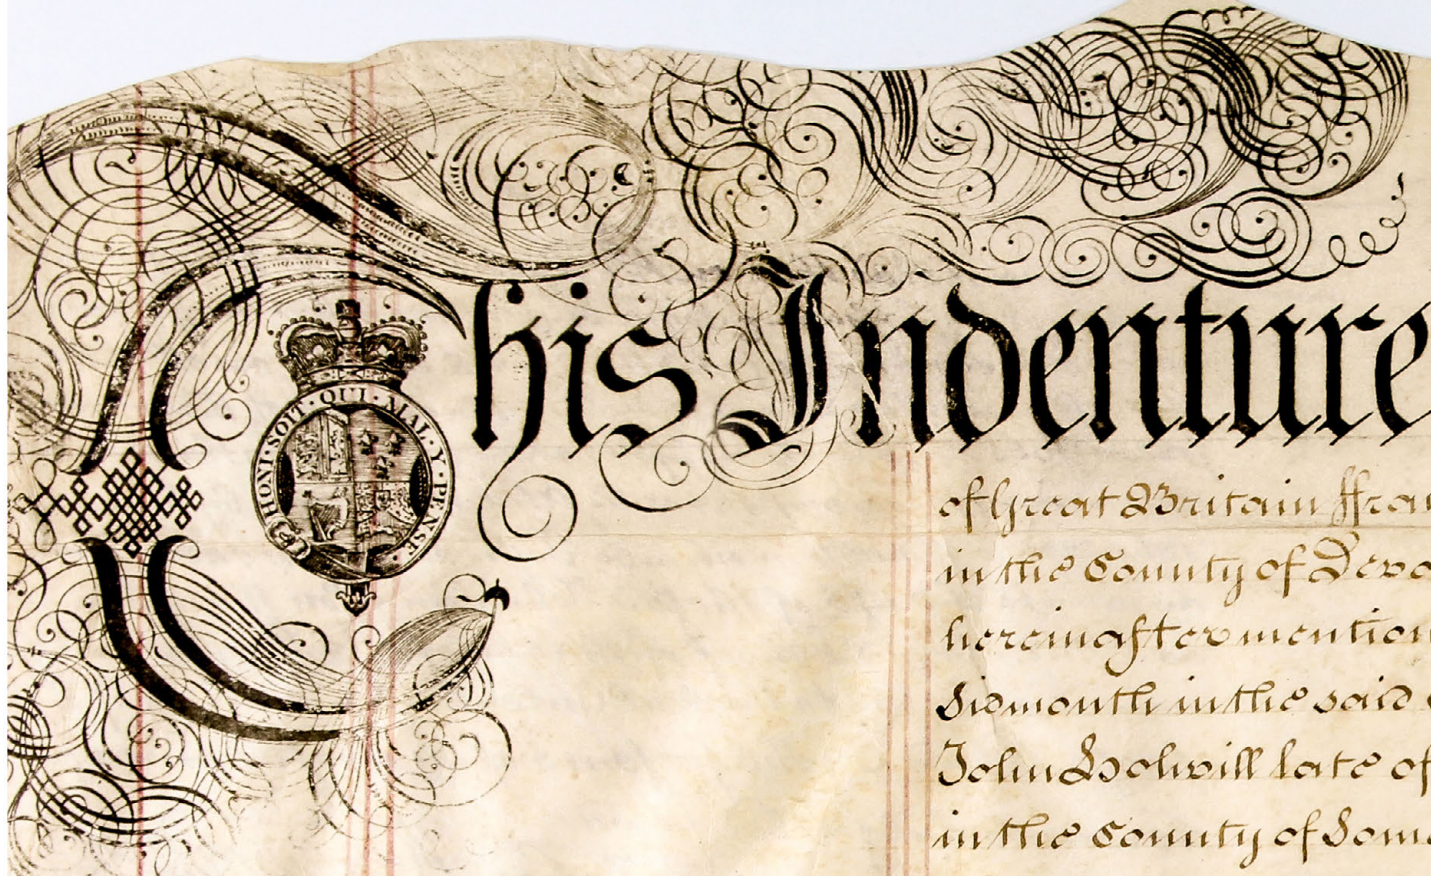 This Indenture
HONI · SOIT · QUI · MAL · Y · PENSE ·
of Great Britain ffra
in the County of Devo
hereinafter mention
Sidmouth in the said
John Holwill late of
in the County of Som